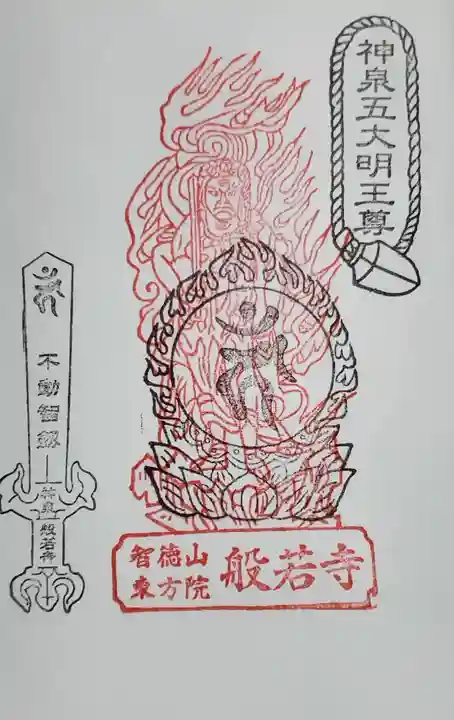 神泉五大明王尊
不動智劔
神泉般若寺
智徳山
東方院
般若寺